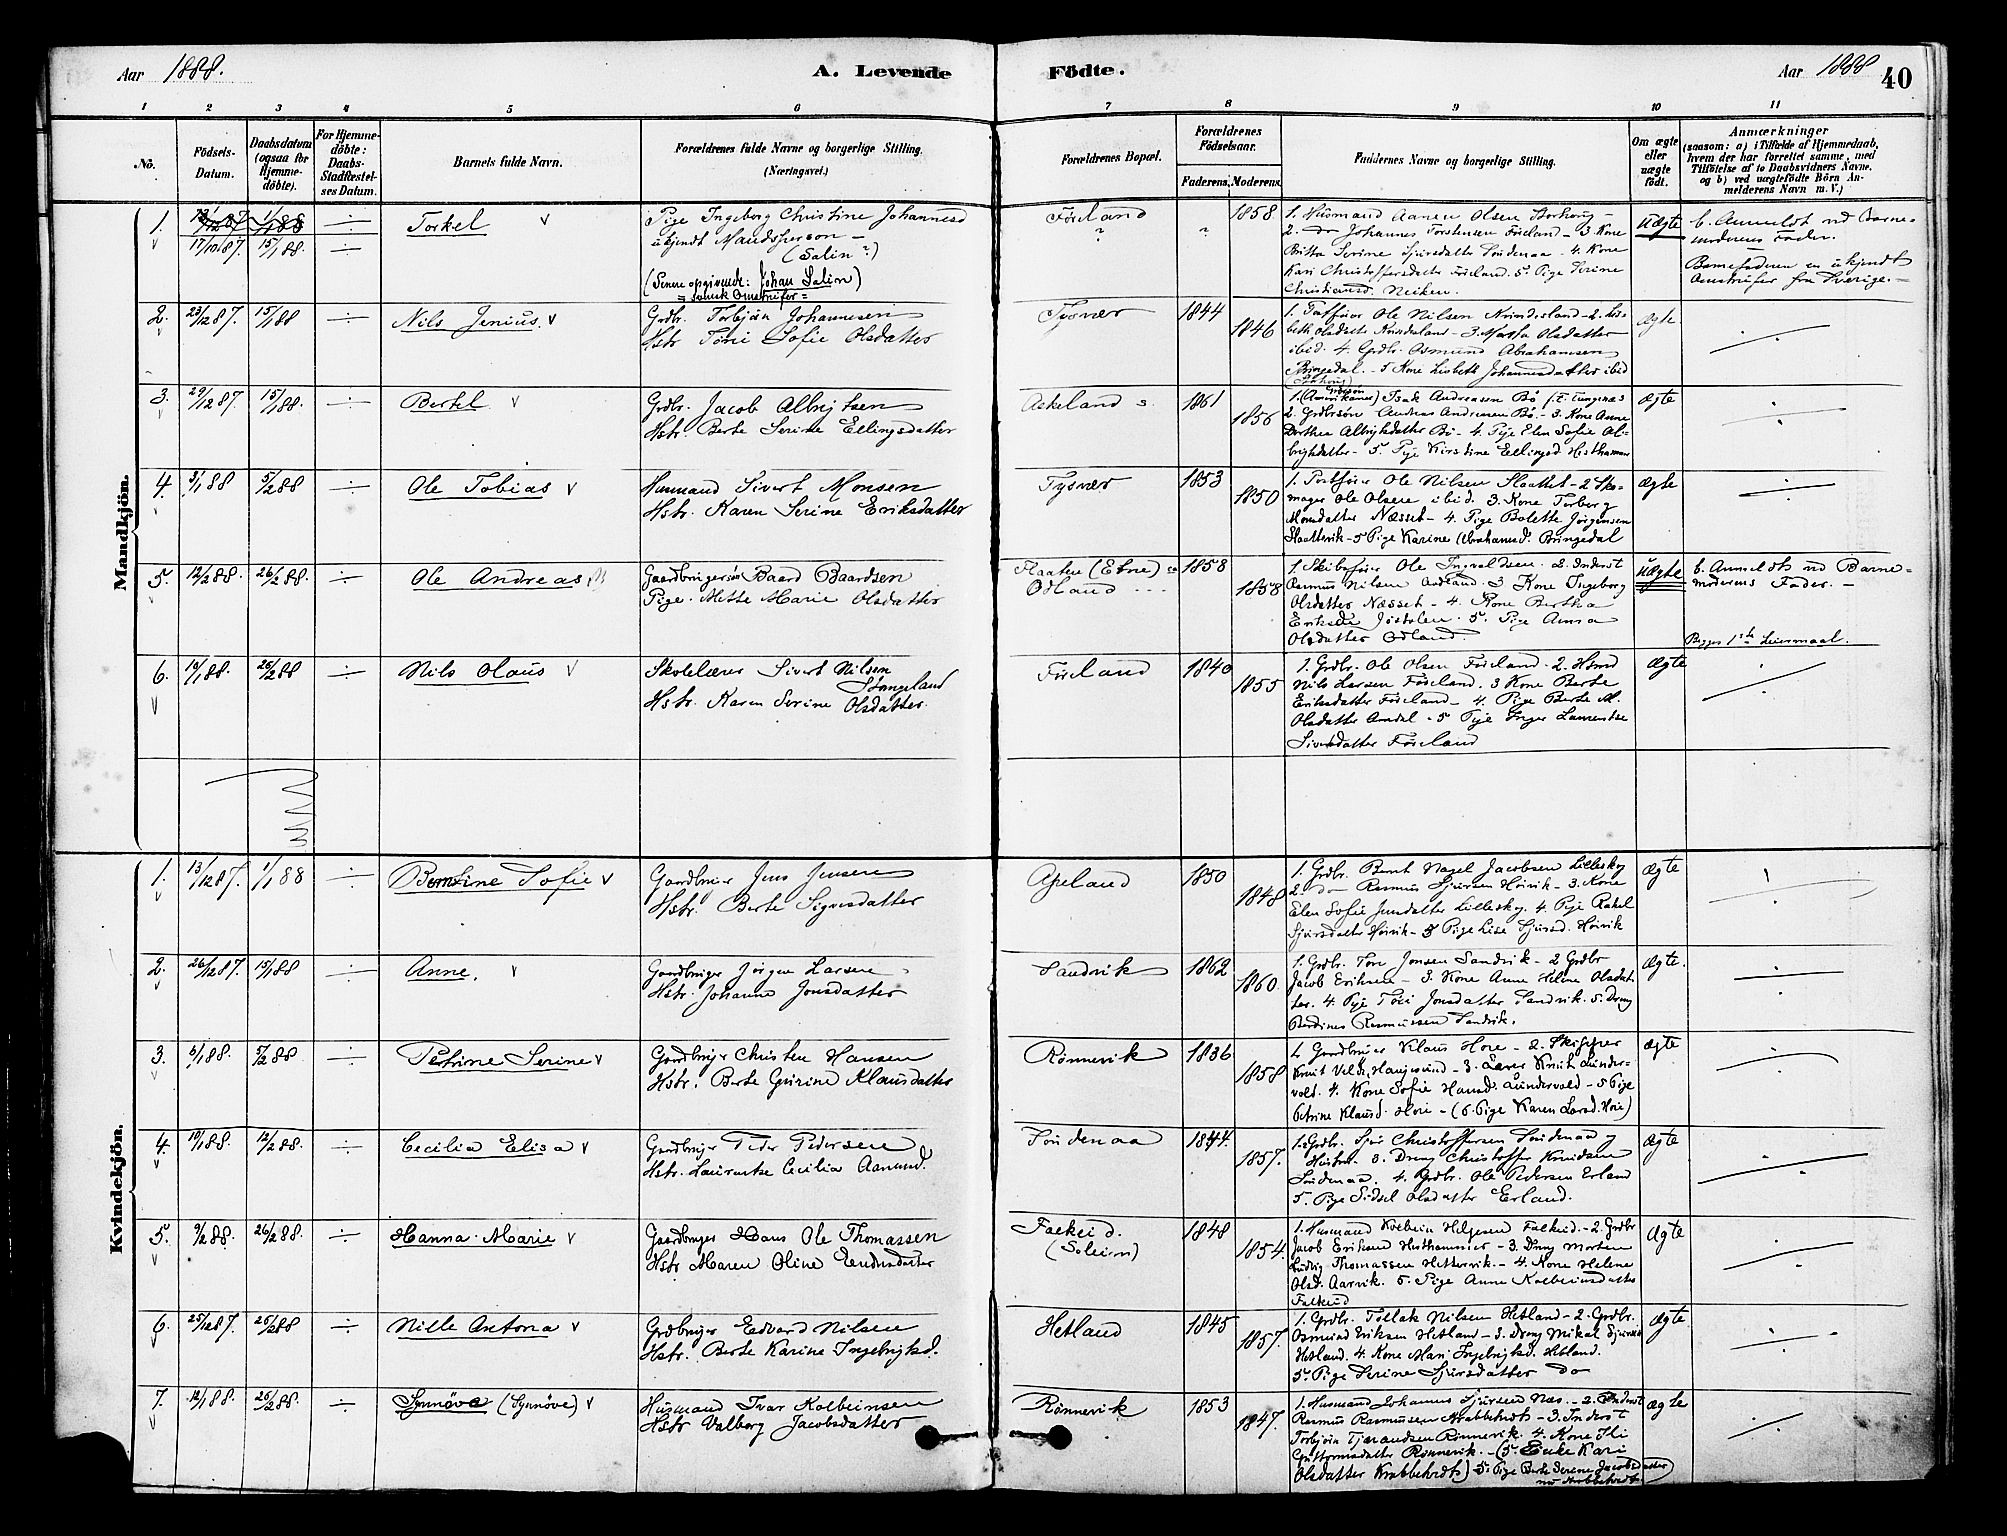 Aar 1888.
A. Levende
Födte.
Aar 1888
40
1 2 3 4 5 6 7 8 9 10 11
No.
Födsels-Datum.
Daabsdatum (ogsaa for Hjemme-döbte).
For Hjemme-döbte: Daabs-Stadfæstel-ses Datum.
Barnets fulde Navn.
Forældrenes fulde Navne og borgerlige Stilling.
(Næringsvei.)
Forældrenes Bopæl.
Forældrenes Födselsaar.
Faderens. Moderens.
Faddernes Navne og borgerlige Stilling.
Om ægte eller uægte födt.
Anmærkninger
(saasom: a) i Tilfælde af Hjemmedaab, hvem der har forrettet samme, med Tilföielse af to Daabsvidners Navne, og b) ved uægtefödte Börn An-melderens Navn m. V.)
Mandkjön.
1. 13/12 87. 1/1 88 ÷ Torkel
17/10 87. 15/1 88. ÷
Pige Ingeborg Christine Johannesd
ukjendt Mandsperson –
(Salin?)
(Senere opgivende: Johan Salin)
= svensk Omstreifer =
Föreland
1858
1. Husmand Aanen Olsen Storhoug –
2. do Johannes Torstensen Föreland – 3. Kone
Britha Serine Sjursdatter Söndenaa – 4. Kone
Kari Christoffersdatter Föreland. 5. Pige Serine
Christiansd. Neiken.
Uægte
b. Anmeldt ved Barne-
moderens Fader.
Barnefaderen en ukjendt
Omstreifer fra Sverige. –
2. 23/12 87. 15/1 88 ÷ Nils Jenius.
Grdbr. Torbjön Johannesen
Hstr Töri Sofie Olsdatter
Tysvær
1844
1846
1. Ole Nilsen – 2. Lis-
beth Olsdatt. – 3. Martha Olsdatter
ibid. 4. Grdbr. Osmund Abrahamsen
Bringedal. – 5 Kone Lisbeth Johannesdatter ibid
Ægte
3. 29/12 87. 15/1 88. ÷ Bertel
Grdbr. Jacob Albrigtsen
Hstr. Berte Serine Ellingsdatter
Askeland s.
1861
1856
1. (Amerikaner) Isak Andreasen Bö
2. Grdbrsön Andreas Andreasen Bö. – 3. Kone Anne
Dorthea Albrigtsdatter Bö – 4. Pige Elen Sofie Al-
brigtsdatter – 5. Pige Kirstine Ellingsd Hesthammer
Ægte
4. 3/1 88 5/2 88 ÷ Ole Tobias
Husmand Sivert Monsen
Hstr. Karen Serine Eriksdatter
Tysvær
1853
1850
1. Ole Nilsen Slottet – 2 Sko-
mager Ole Olsen ibid. 3. Kone Torberg
Monsdatter Næsset – 4. Pige Bolette Jörgensen
Slaattevik – 5 Pige Karine Abrahamsd. Bringedal
Ægte
5. 12/2 88. 26/2 88. ÷ Ole Andreas
Gaardbrugersön Baard Baardsen
Pige. Mette Marie Olsdatter
Flaaten (Etne)
Odland
1858
1858
1. Skibsförer Ole Ingvaldsen. 2. Inderst
Rasmus Nilsen Aadland. 3 Kone Ingeborg
Olsdatter Næsset – 4. Kone Bertha
Eriksen Jöstolen. 5. Pige Anna
Olsdatter Odland.
Uægte
b. Anmeldt ved Barne-
moderens Fader. –
Begges 1ste Leiermaal.
6. 10/1 88. 26/2 88 ÷ Nils Olaus
Skolelærer Sivert Nilsen
Stangeland
Hstr. Karen Serine Olsdatter.
Föreland
1840
1855
1. Grdbr. Ole Olsen Föreland. 2. Hsmd
Nils Larsen Föreland. 3 Kone Berte
Eriksdatter Föreland – 4. Pige Berte M.
Olsdatter Amdal – 5 Pige Inger Laurentse
Sivertsdatter Föreland
Ægte
Kvindekjön.
1. 13/12 87. 1/1 88 ÷ Berntine Sofie
Gaardbruger Jens Jensen
Hstr. Berte Sigvesdatter
Apeland
1850
1848
1. Grdbr. Bernt Nagel Jacobsen Lilleskog
2. do Rasmus Sjursen Höivik – 3. Kone
Elen Sofie Jensdatter Lilleskog. 4. Pige Rakel
Sjursdatter Höivik – 5 Pige Lise Sjursd. Höivik
Ægte
2. 26/12 87. 15/1 88 ÷ Anne.
Gaardbruger Jörgen Larsen
Hstr. Johanne Jonsdatter
Sandvik
1862
1860.
1. Grdbr. Tore Jonsen Sandvik – 2 Grdbr
Jacob Eriksen – 3. Kone Anne Helene Olsdat-
ter. 4. Pige Töri Jonsdatter Sandvik. 5. Dreng
Berdines Rasmussen Sandvik.
Ægte.
3. 6/1 88. 5/2 88 ÷ Petrine Serine
Gaardbruger Christen Hansen
Hstr. Berte Gurine Klausdatter
Rönnevik
1836
1858
1. Gaardbruger Klaus Hoie – 2. Skipper
Knut Velde, Haugesund – 3. Lærer Knut Lunder-
vold. 4. Kone Sofie Hansd. Lundervold – 5 Pige
Petrine Klausd. Hoie – (6. Pige Karen Larsd. Hoie)
Ægte
4. 10/1 88. 12/2 88. ÷ Cecilia Elisa
Gaardbruger Peder Pedersen
Hstr. Laurentse Cecilia Aanund.
Söndenaa
1844.
1857.
1. Grdbr. Sjur Christoffersen Söndenaa og
Hustru. 3. Dreng Christoffer Knudsen
Söndenaa. 4. Grdbr. Ole Pedersen Erland
5. Pige Sidsel Olsdatter Erland.
Ægte
5. 9/2 88. 26/2 88. ÷ Hanna Marie
Gaardbruger Hans Ole Thomassen
Hstr Maren Oline Endresdatter
Falkeid.
(Soleim)
1848
1854.
1. Husmand Kolbein Helgesen Falkeid. – 2. Grdbr
Jacob Eriksen Hesthammer – 3. Dreng Morten
Ludvig Thomassen Hettervik – 4. Kone Helene
Olsd. Aarvik. 5. Pige Anne Kolbeinsdatter
Falkeid
Ægte
6. 25/12 87. 26/2 88 ÷ Nille Antona
Grdbruger Edvard Nilsen
Hstr. Berte Karine Ingebrigtsd.
Hetland
1845
1857.
1. Grdbr. Tollak Nilsen Hetland – 2. Grdbr.
Osmund Eriksen Hetland – 3. Dreng Mikal Sjursen
Hetland. 4. Kone Mari Ingebrigtsd. Hetland.
5. Pige Serine Sjursdatter do
Ægte
7. 12/1 88. 26/2 88. ÷ Synnöve (Synnöve)
Husmand Ivar Kolbeinsen
Hstr Valborg Jacobsdatter
Rönnevik
1853
1847.
1. Husmand Johannes Sjursen Næs. – 2. Inderst
Rasmus Rasmussen Krabbetveit – 3. Inderst
Torbjörn Tjerandsen Rönnevik. 4. Kone Ili
Guttormsdatter Rönnevik. – (5. Enke Kari
Olsdatter Krabbetvedt) 5. Pige Berte Serene Jacobsdatter
Krabbetvedt.
Ægte